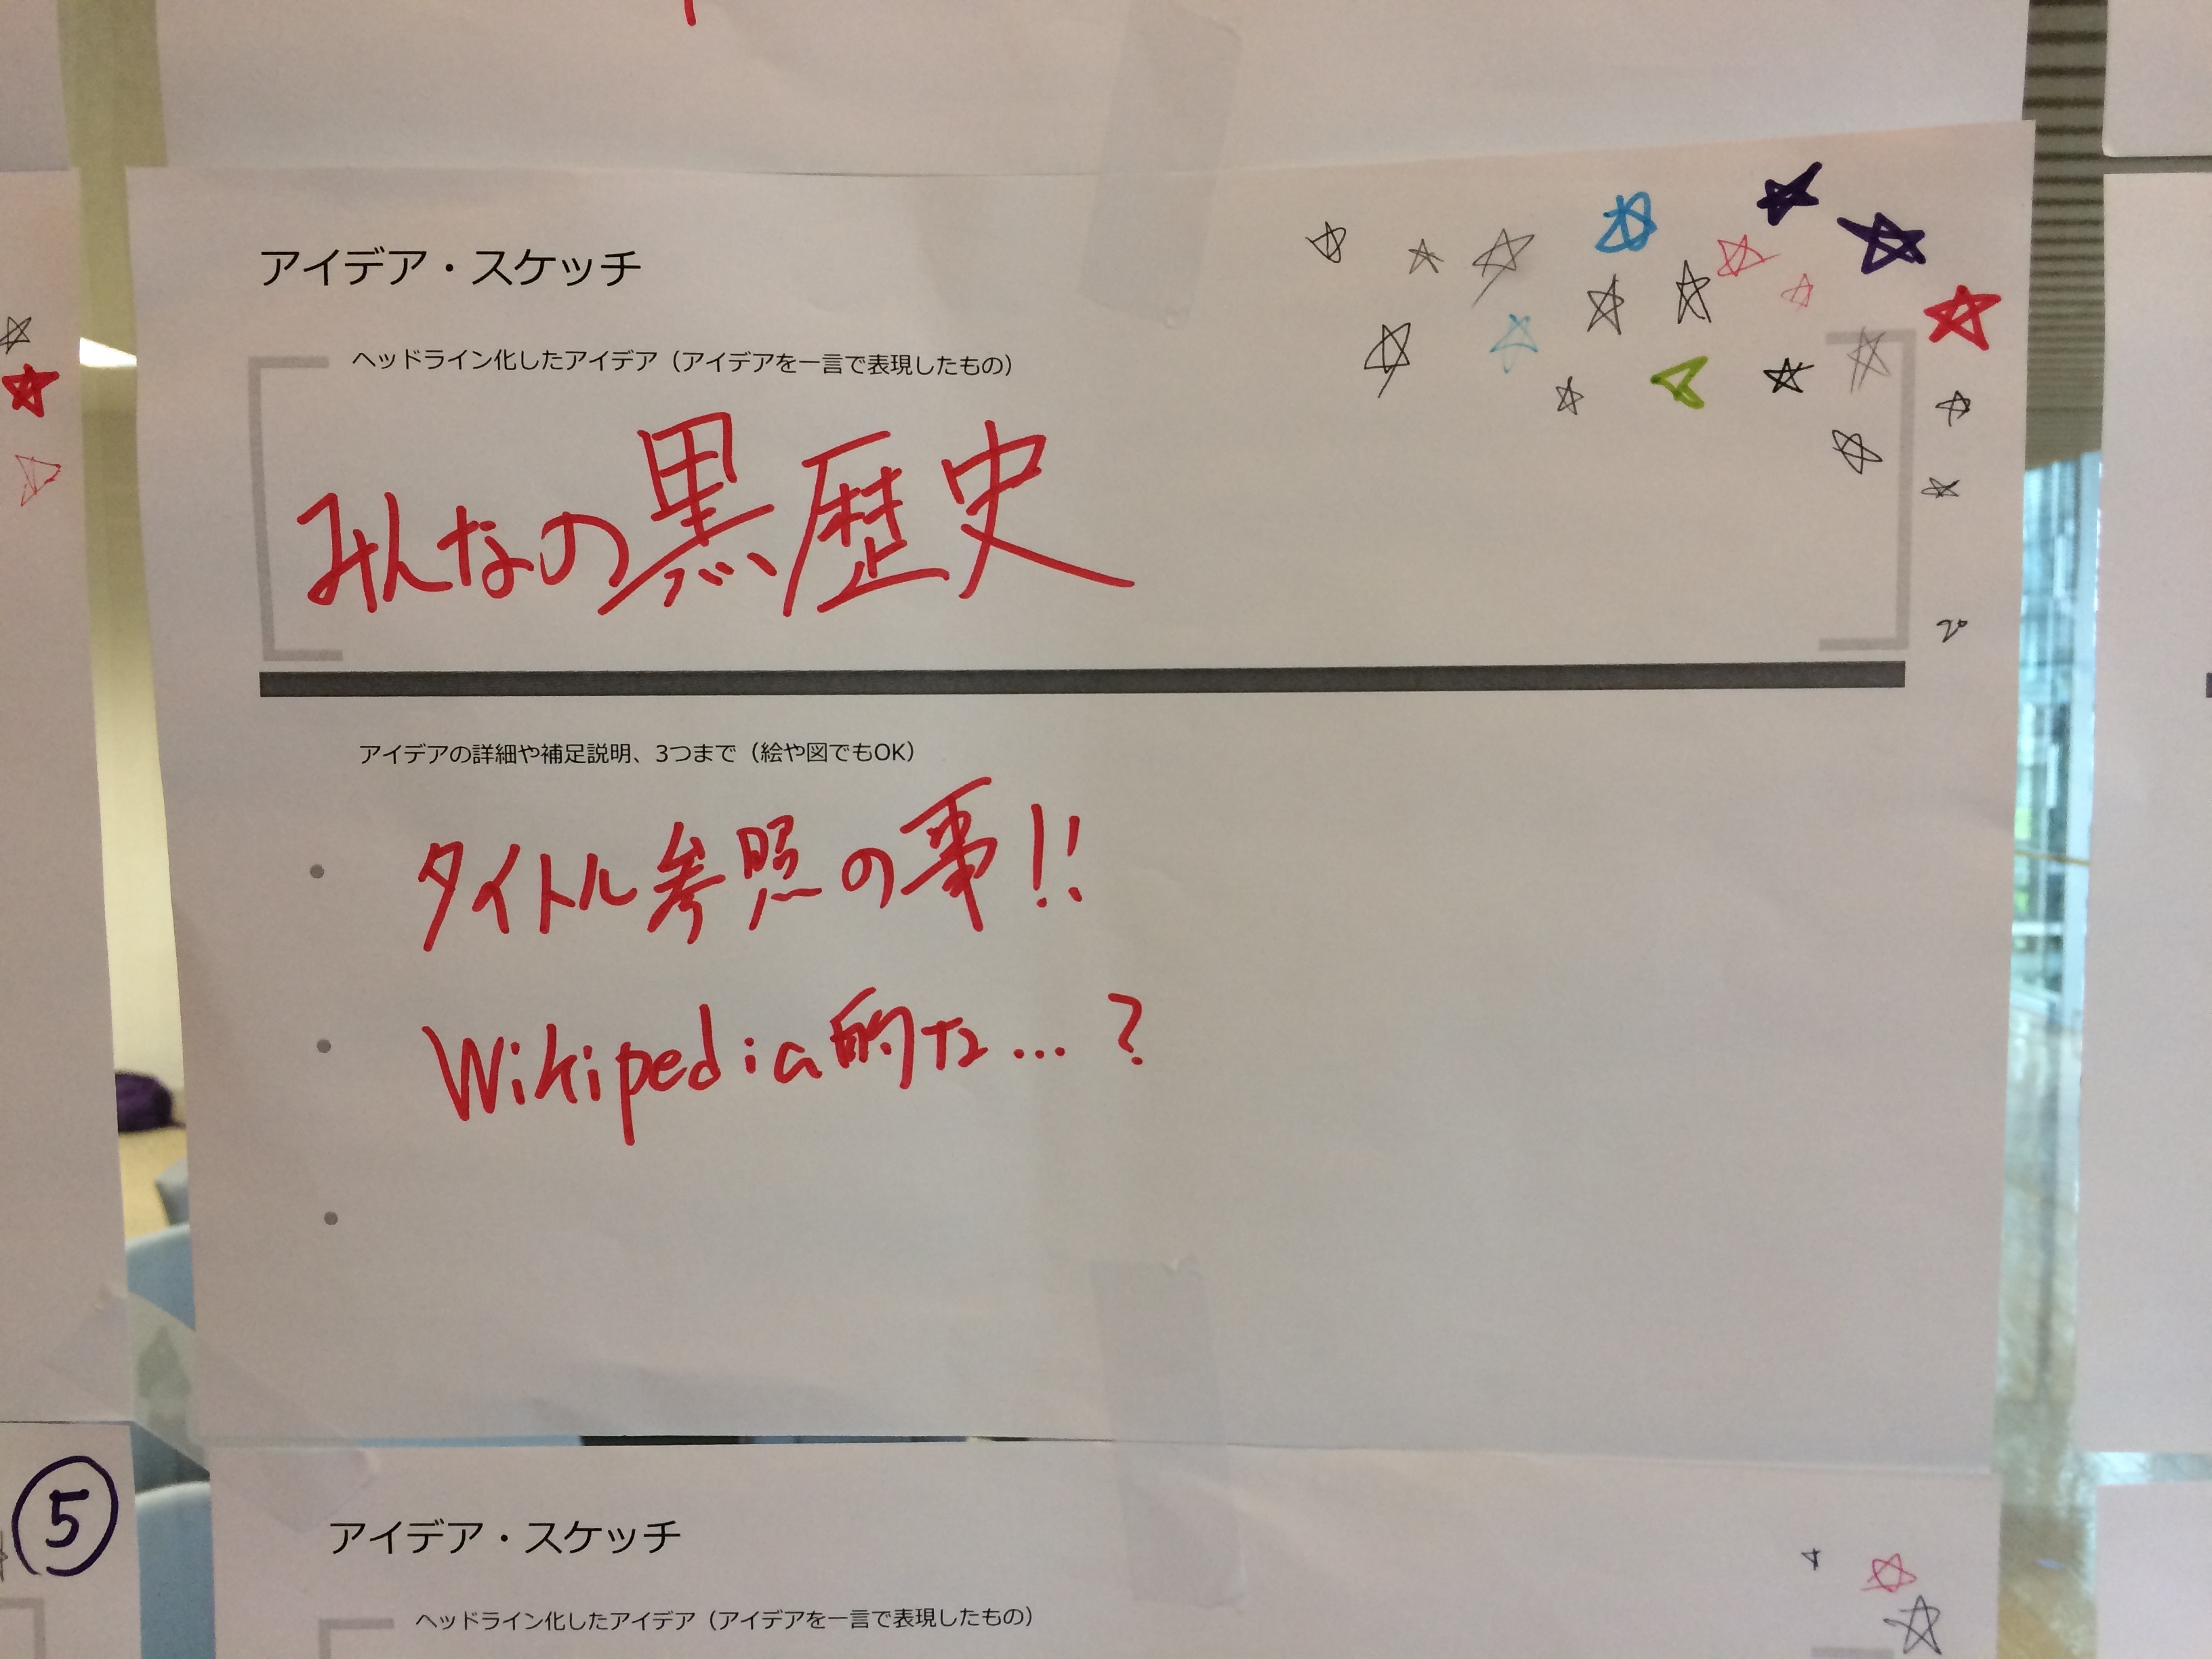 アイデア・スケッチ
ヘッドライン化したアイデア（アイデアを一言で表現したもの）
みんなの黒歴史
アイデアの詳細や補足説明、3つまで（絵や図でもOK）
• タイトル参照の事!!
• Wikipedia的な…?
•
⑤
アイデア・スケッチ
ヘッドライン化したアイデア（アイデアを一言で表現したもの）